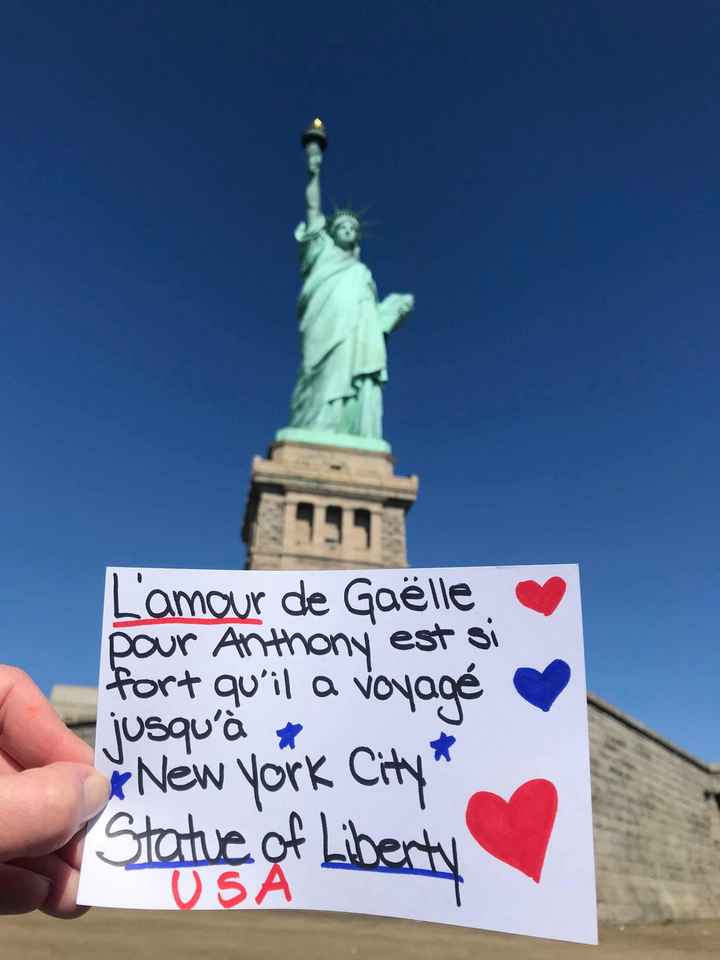 L'amour de Gaëlle
pour Anthony est si
fort qu'il a voyagé
jusqu'à
New York City
Statue of Liberty
USA